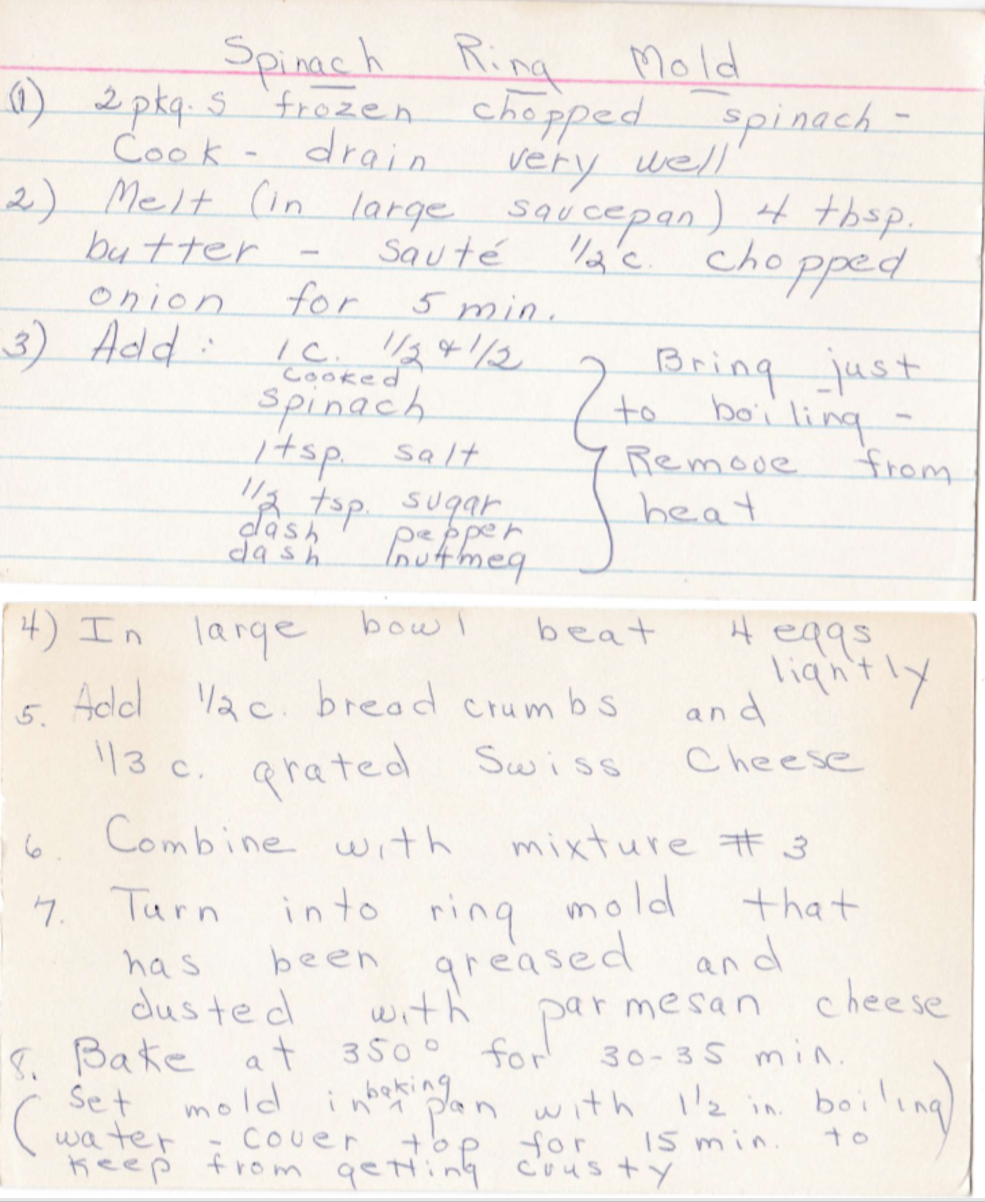 Spinach Ring Mold
(1) 2 pkg.s frozen chopped spinach -
Cook - drain very well
2) Melt (in large saucepan) 4 tbsp.
butter - sauté 1/2 c. chopped
onion for 5 min.
3) Add : 1 c. 1/2 & 1/2
cooked
spinach
1 tsp. salt
1/2 tsp. sugar
dash pepper
dash nutmeg
Bring just
to boiling -
Remove from
heat
4) In large bowl beat 4 eggs
lightly
5. Add 1/2 c. bread crumbs and
1/3 c. grated Swiss Cheese
6. Combine with mixture # 3
7. Turn into ring mold that
has been greased and
dusted with parmesan cheese
8. Bake at 350° for 30-35 min.
(Set mold in baking pan with 1 1/2 in. boiling
water - cover top for 15 min. to
keep from getting crusty)